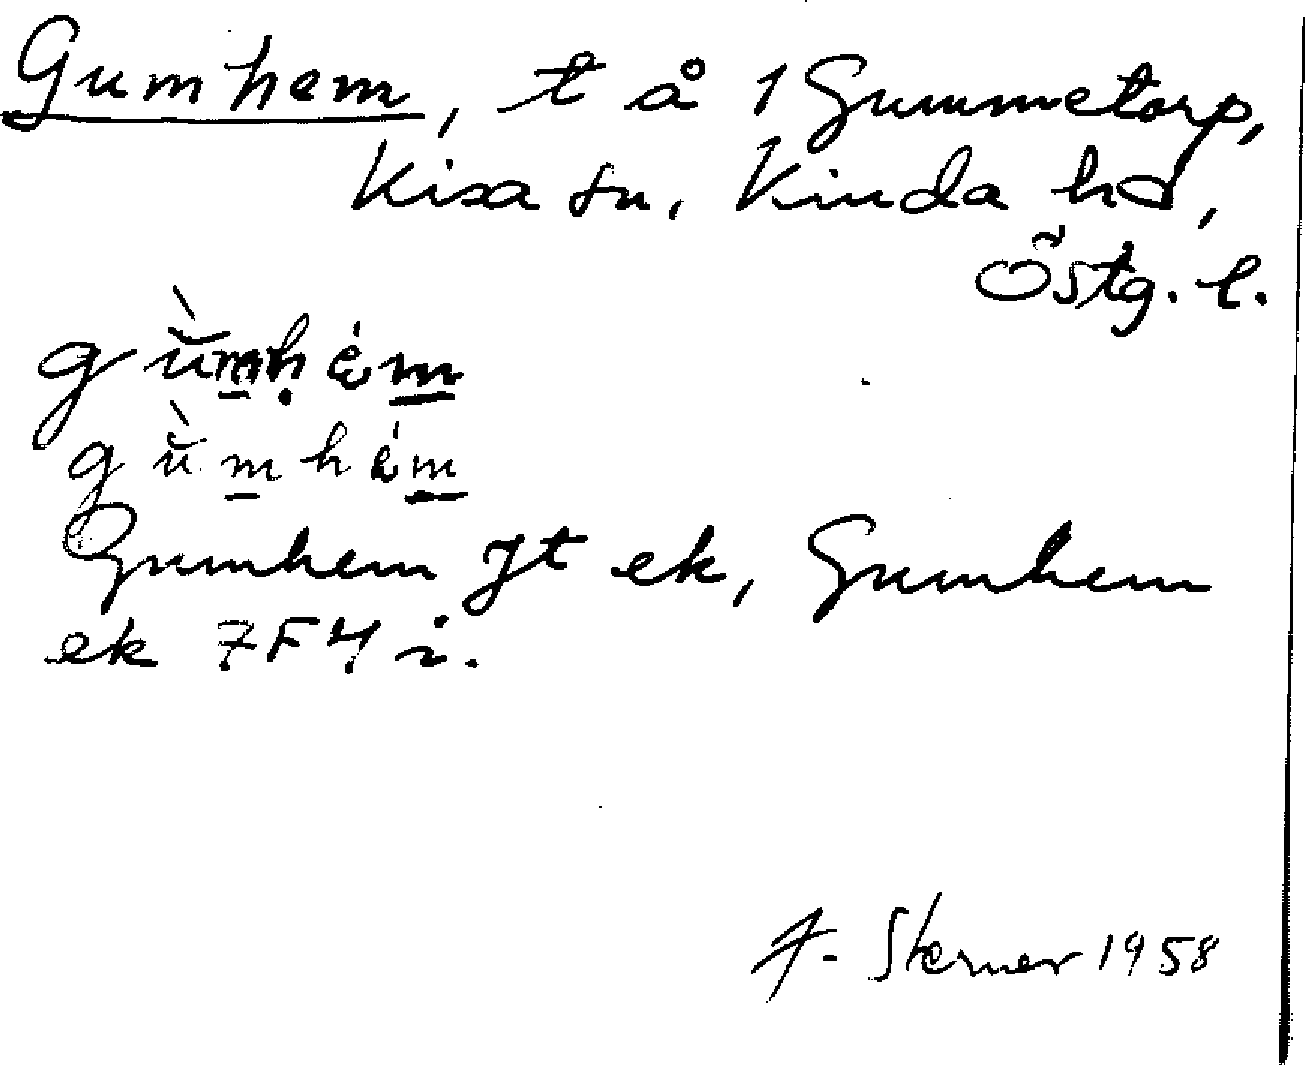 Gumhem, t å 1 Gummetorp,
Kisa sn, Kinda hd,
Östg. l.
gùmhém
gùmhém
Gumhem Jt ek, Gumhem
ek 7F4i.
A. Sterner 1958